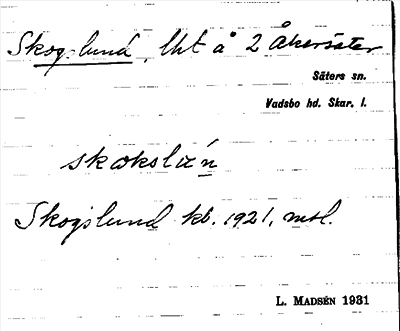 Skogslund, lht å 2 Åkersäter
Säters sn.
Vadsbo hd. Skar. l.
skɷkslɷ́n
Skogslund kb. 1921, mtl.
L. MADSÉN 1931